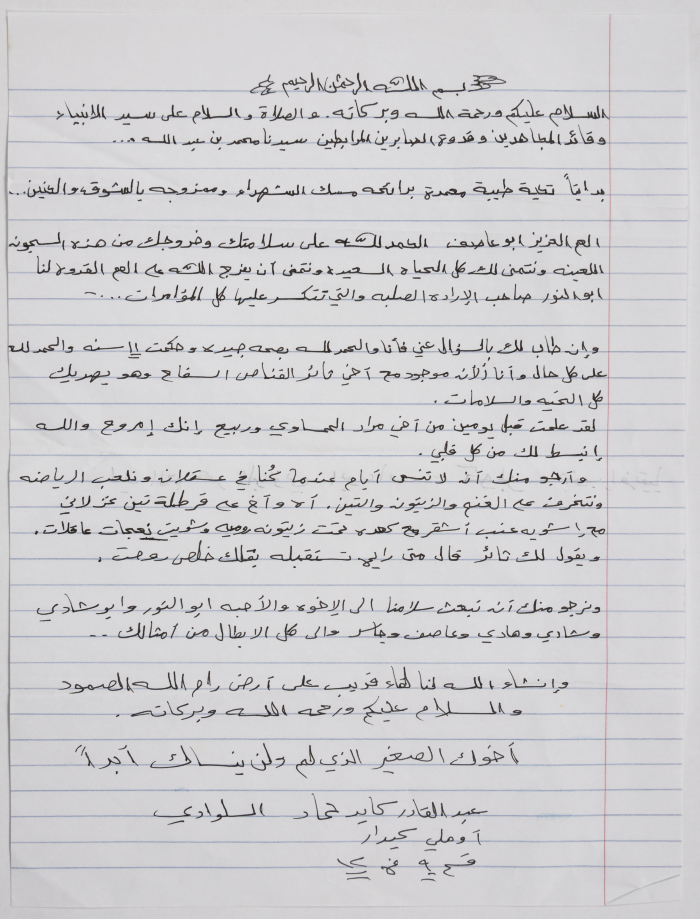 بسم الله الرحمن الرحيم
السلام عليكم ورحمة الله وبركاته. والصلاة والسلام على سيد الانبياء
وقائد المجاهدين وقدوة الصابرين المرابطين سيدنا محمد بن عبد الله ...
بدايتاً تحية طيبة معمدة برائحه مسك الشهداء وممزوجه بالشوق والحنين...
العم العزيز ابو عاصف الحمد لله على سلامتك وخروجك من هذه السجون
اللعينه ونتمنى لك كل الحياه السعيده ونتمنى أن يفرج الله على العم القدوه لنا
ابو النور صاحب الإراده الصلبه والتي تتكسر عليها كل المؤامرات...
وإن طاب لك بالسؤال عني فأنا والحمد لله بصحه جيده وحكمت 11 سنه والحمد لله
على كل حال وأنا الأن موجود مع أخي ثائر القناص السفاح وهو يهديك
كل التحيه والسلامات.
لقد علمت قبل يومين من أخي مراد العجاوي وربيع إنك إمروح والله
إنبسط لك من كل قلبي.
وأرجو منك أن لا تنس أيام عندما كُنا في عسقلان ونلعب الرياضه
ونتخرف على الغنم والزيتون والتين. آه وآخ على قرطلة تين
مع إشويه عنب أشقر مع كعده تحت زيتونه روميه وشويت نعجات
ويقول لك ثائر قال متى رايح تستقبله يقلك خلص روحت.
ونرجو منك أن تبعث سلامنا الى الإخوه والأحبه ابو النور وابو شادي
وشادي وهادي وعاصف والى كل الابطال من أمثالك..
وإنشاء الله لنا لقاء قريب على أرض رام الله الصمود
والسلام عليكم ورحمه الله وبركاته.
أخوك الصغير الذي لم ولن ينساك أبداً
عبد القادر كايد حماد السلوادي
أوهلي كيدار
قسم 9 غ 12